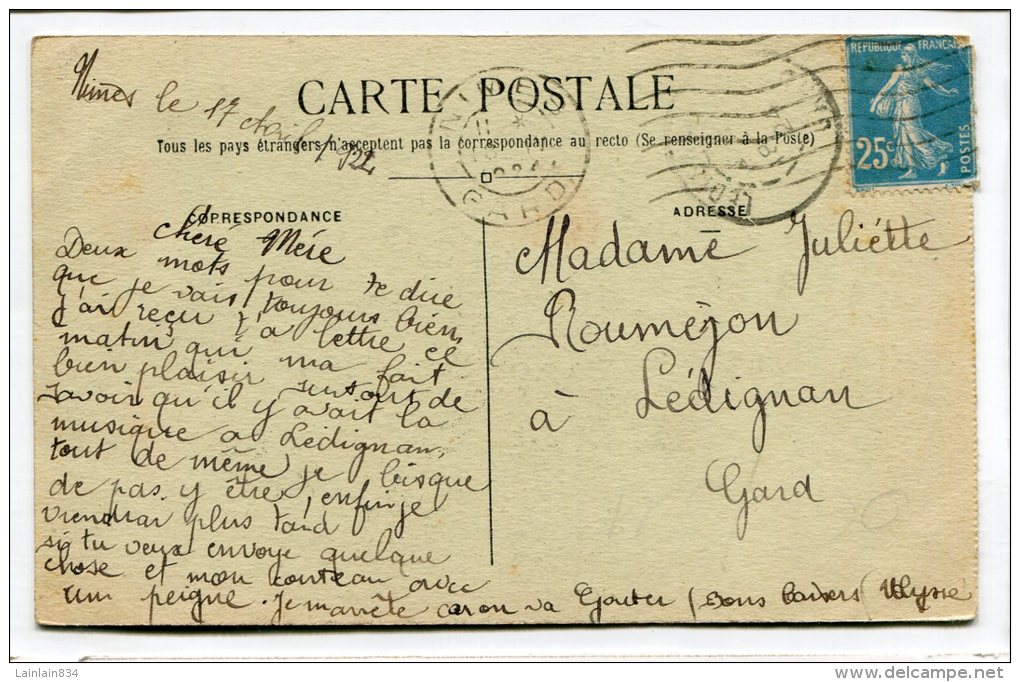 Nîmes le 17 Avril 1922
CARTE POSTALE
Tous les pays étrangers n'acceptent pas la correspondance au recto (Se renseigner à la Poste)
REPUBLIQUE FRANÇAISE
25c
POSTES
NIMES
GARD
CORRESPONDANCE
ADRESSE
Chère Mère
Deux mots pour te dire
que je vais toujours bien,
j'ai reçu t'a lettre ce
matin qui ma fait
bien plaisir surtout de
savoir qu'il y avait la
musique a Lédignan,
tout de même je bisque
de pas y être, enfin je
viendrai plus tard
si tu veux envoye quelque
chose et mon couteau avec
un peigne. Je m'arrête car on va Goûter (Bons baisers (Ulysse
Madame Juliétte
Rouméjon
à Lédignan
Gard
Lainlain834
www.delcampe.net